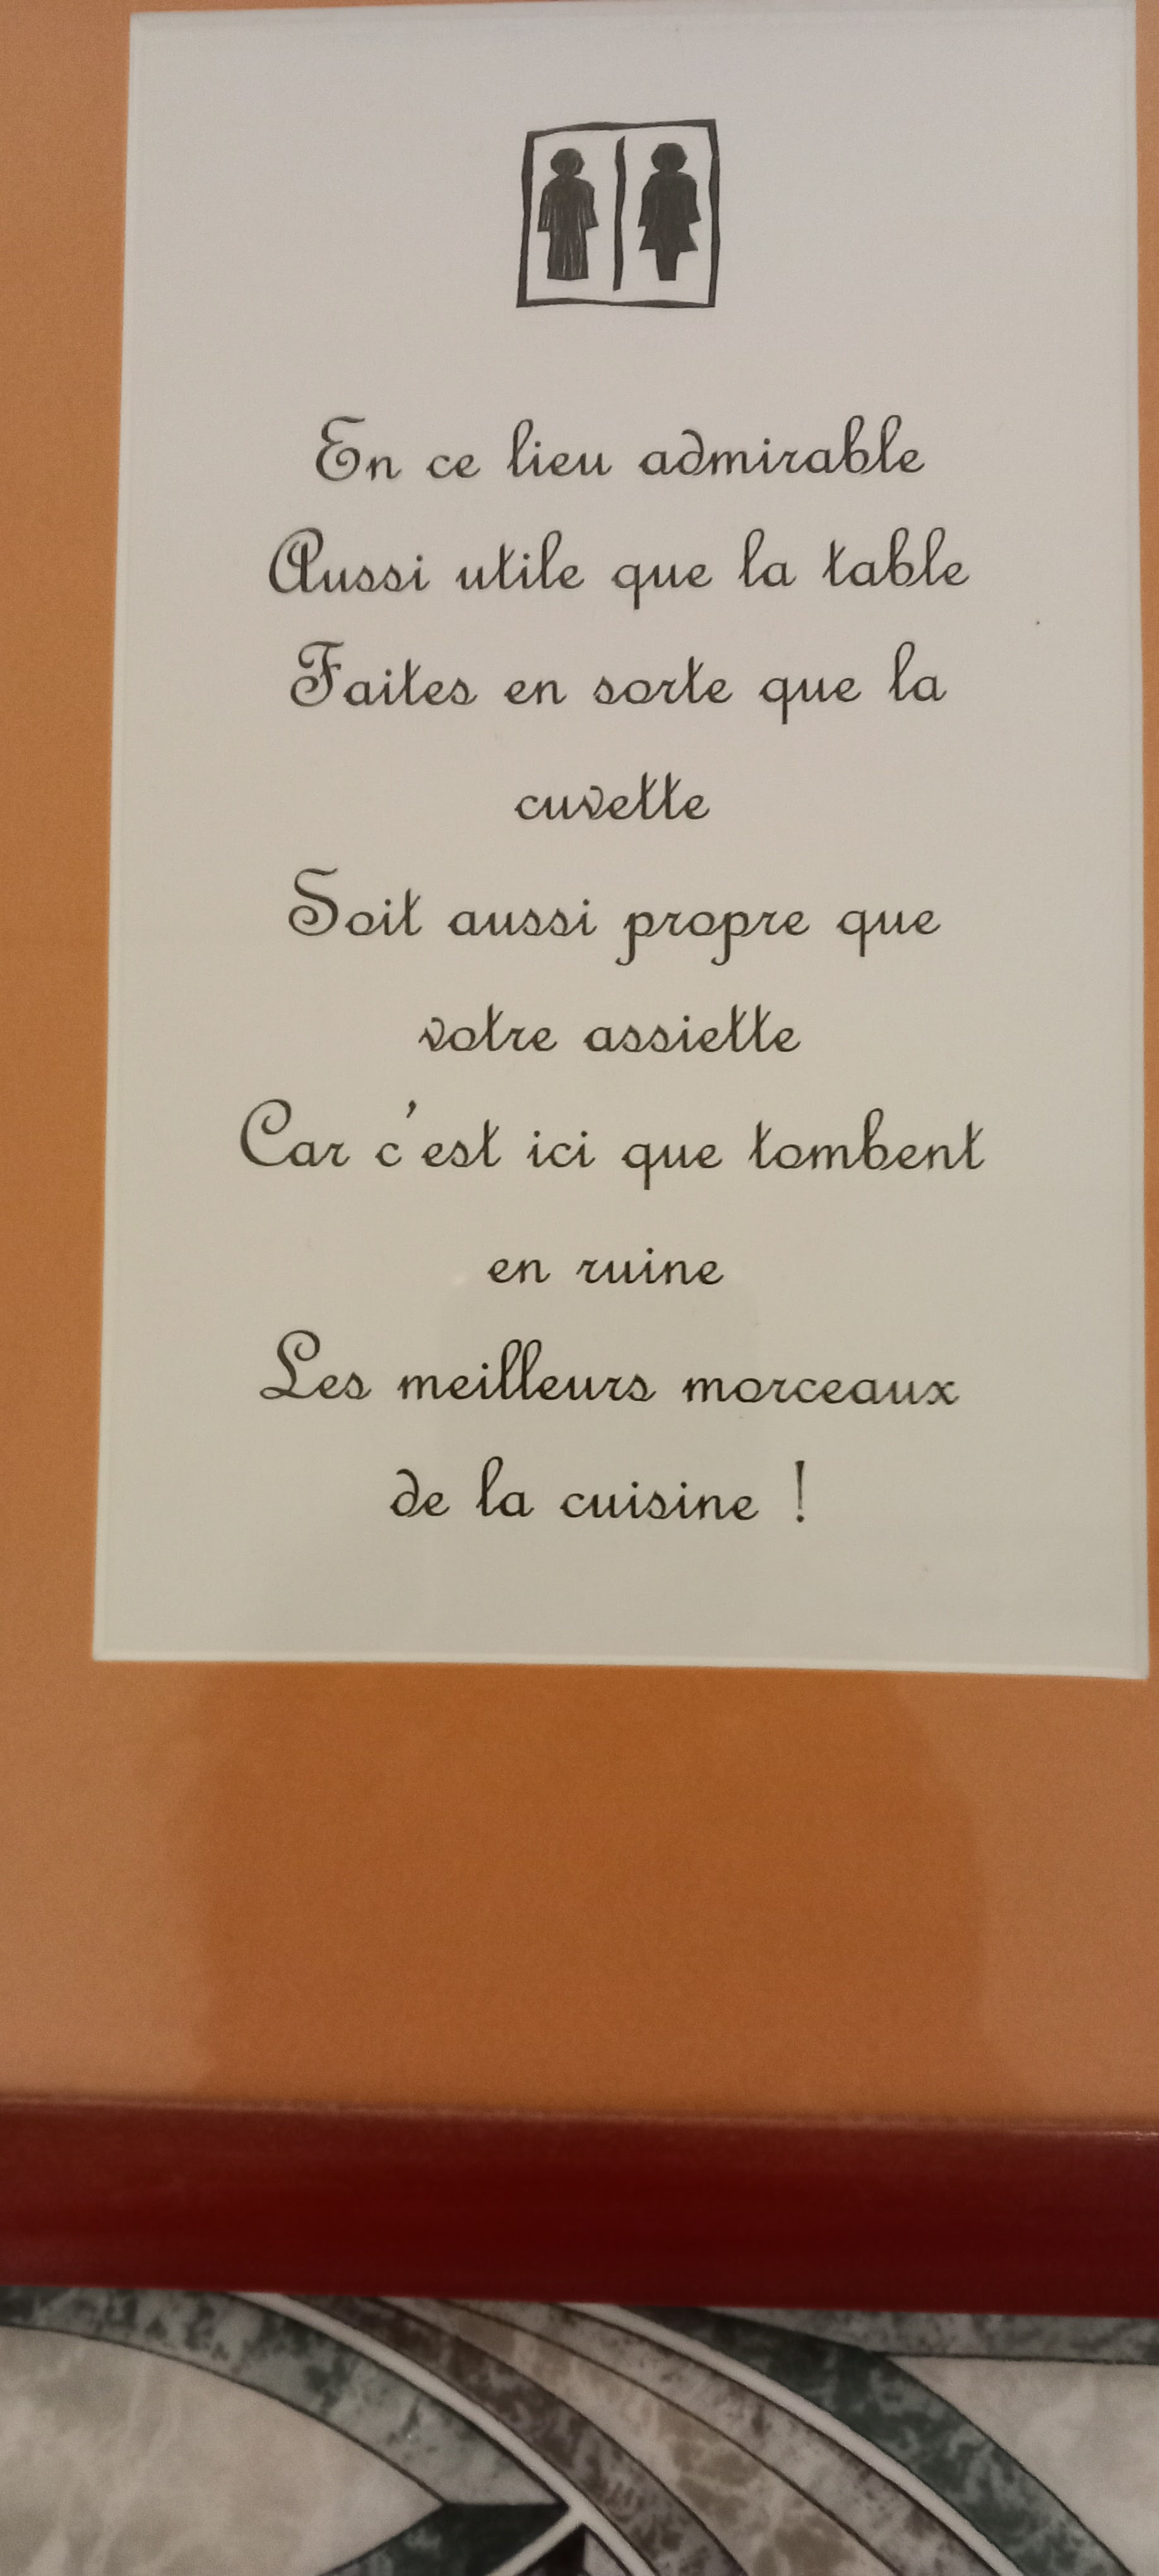 En ce lieu admirable
Aussi utile que la table
Faites en sorte que la
cuvette
Soit aussi propre que
votre assiette
Car c'est ici que tombent
en ruine
Les meilleurs morceaux
de la cuisine !